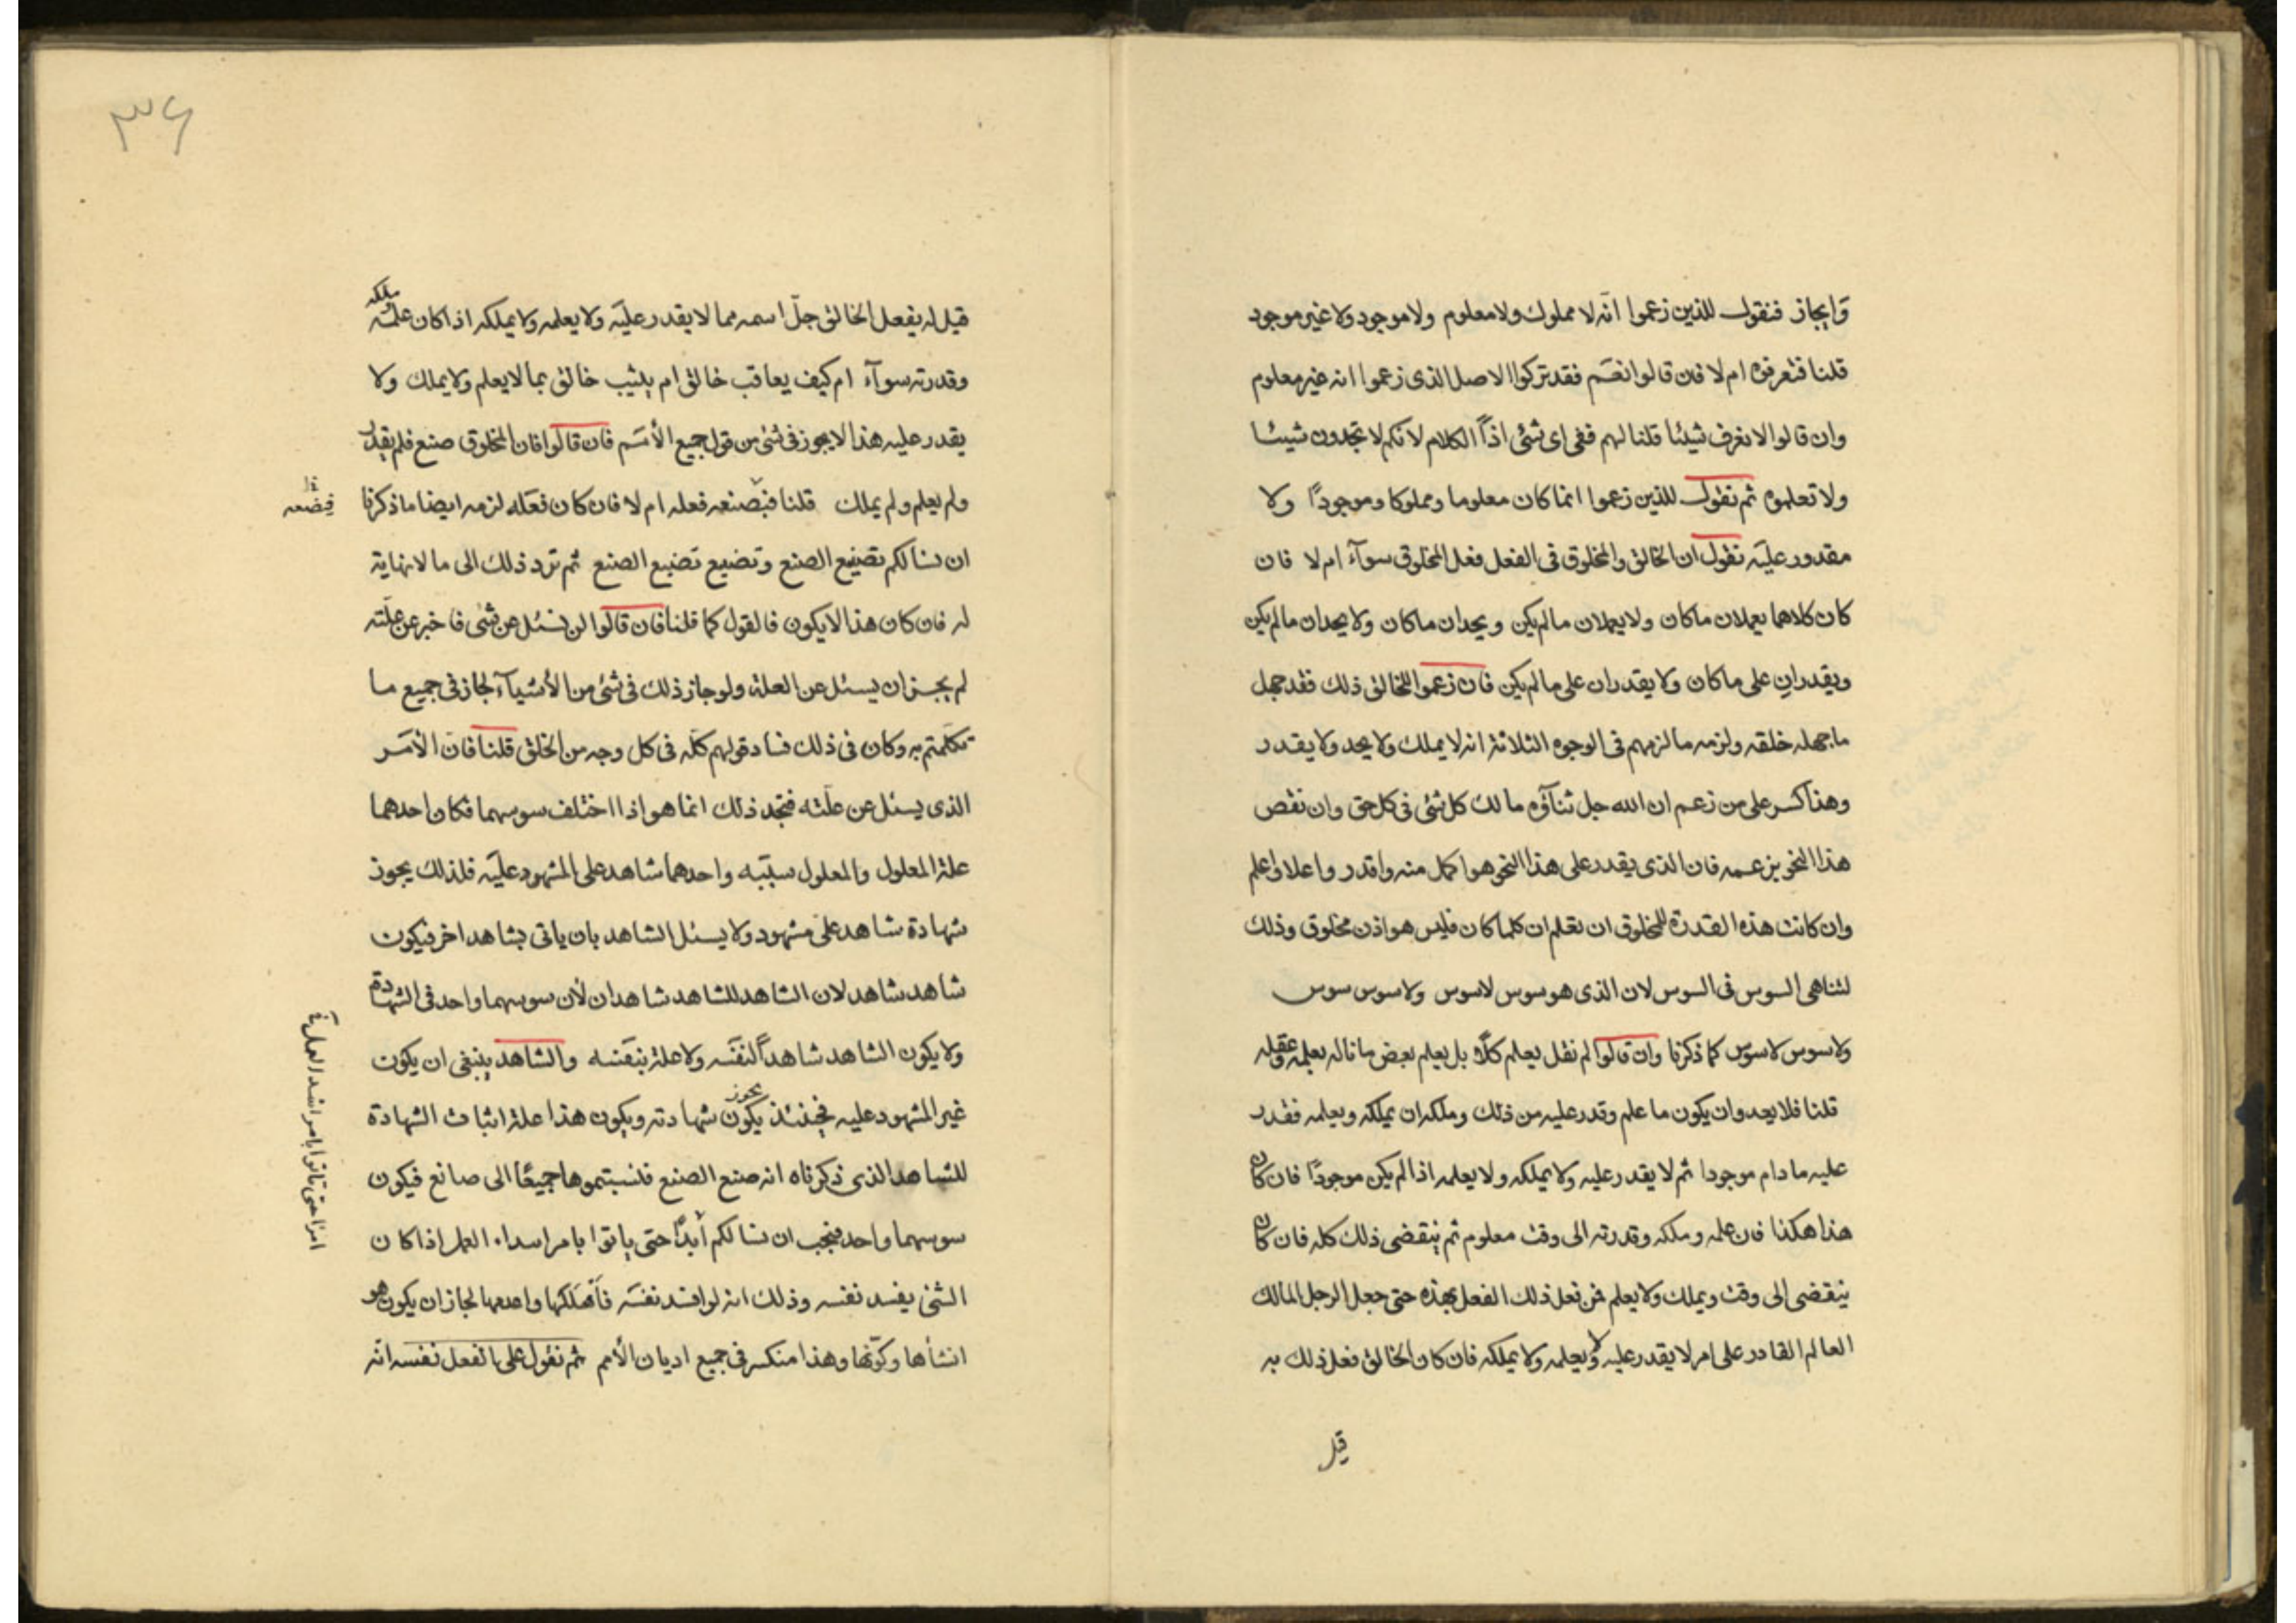 وايجاز فنقول للذين زعموا انه لا مملوك ولا معلوم ولا موجود ولا غير موجود
قلنا فتعرفوه ام لا فان قالوا نعم فقد تركوا الاصل الذى زعموا انه غير معلوم
وان قالوا لا نعرف شيئا قلنا لهم ففى اى شئ اذاً الكلام لانكم لا تجدون شيئا
ولا تعلموه ثم نقول للذين زعموا انما كان معلوما ومملوكا وموجودًا ولا
مقدور عليه نقول ان الخالق والمخلوق فى الفعل فعل المخلوق سوآء ام لا فان
كان كلاهما يعملان ماكان ولا يعملان مالم يكن ويحدان ماكان ولا يحدان مالم يكن
ويقدران على ماكان ولا يقدران على مالم يكن فان زعموا للخالق ذلك فقد جهل
ماجهله خلقه ولزمه مالزمهم فى الوجوه الثلاثة انه لا يملك ولا يحد ولا يقدر
وهذا كسر على من زعم ان الله جل ثناؤه مالك كل شئ فى كل حق وان نقص
هذا النحو بزعمه فان الذى يقدر على هذا النحو هو اكمل منه واقدر واعلا واعلم
وان كانت هذه القدرة للمخلوق ان تعلم ان كلما كان فليس هو اذن مخلوق وذلك
لتناهى السوس فى السوس لان الذى هو سوس لا سوس ولا سوس سوس
ولا سوس لا سوس كما ذكرنا وان قالوا لم نقل يعلم كلاً بل يعلم بعض ما ناله بعلمه وعقله
قلنا فلا يعدو ان يكون ما علم وقدر عليه من ذلك وملكه ان يملكه ويعلمه فقدر
عليه مادام موجودا ثم لا يقدر عليه ولا يملكه ولا يعلمه اذا لم يكن موجودًا فان كان
هذا هكذا فان علمه وملكه وقدرته الى وقت معلوم ثم ينقضى ذلك كله فان كان
ينقضى الى وقت ويملك ولا يعلم فمن فعل ذلك الفعل بهذه حتى جعل الرجل المالك
العالم القادر على امر لا يقدر عليه ولا يعلمه ولا يملكه فان كان الخالق فعل ذلك به
قيل
٣٤
قيل له يفعل الخالق جلّ اسمه مما لا يقدر عليه ولا يعلمه ولا يملكه اذا كان علمه
ملكه
وقدرته سوآء ام كيف يعاقب خالق ام يثيب خالق بما لا يعلم ولا يملك ولا
يقدر عليه هذا لا يجوز فى شئ من قول جميع الأمم فان قالوا فان المخلوق صنع فلم يقدر
ولم يعلم ولم يملك قلنا فبصنعه فعله ام لا فان كان فعله لزمه ايضا ما ذكرنا
ان نسالكم تصنيع الصنع وتصنيع تصنيع الصنع ثم ترد ذلك الى ما لا نهاية
له فان كان هذا لا يكون فالقول كما قلنا فان قالوا لن نسئل عن شئ فاخبر عن علّته
لم يجز ان يسئل عن العلة ولو جاز ذلك فى شئ من الأشيآء لجاز فى جميع ما
تكلمتم به وكان فى ذلك فساد قولهم كله فى كل وجه من الخلق قلنا فان الأمر
الذى يسئل عن علّته فتجد ذلك انما هو اذا اختلف سوسهما فكان احدهما
علة المعلول والمعلول سببه واحدهما شاهد على المشهود عليه فلذلك يجوز
شهادة شاهد على مشهود ولا يسئل الشاهد بان ياتى بشاهد اخر فيكون
شاهد شاهد لان الشاهد للشاهد شاهدان لأن سوسهما واحد فى الشهادة
ولا يكون الشاهد شاهداً لنفسه ولا علة بنفسه والشاهد ينبغى ان يكون
غير المشهود عليه فحينئذ يكون شهادته ويكون هذا علة اثبات الشهادة
يجوز
للشاهد الذى ذكرناه انه صنع الصنع فلنسبتموها جميعًا الى صانع فيكون
سوسهما واحد فيجب ان نسالكم أبدًا حتى ياتوا بامر اسداء العمل اذا كان
الشئ يفسد نفسه وذلك انه لو افسد نفسه فأهلكها واعدمها لجاز ان يكون هو
انشأها وكوّنها وهذا منكسر فى جميع اديان الأمم ثم نقول على الفعل نفسه انه